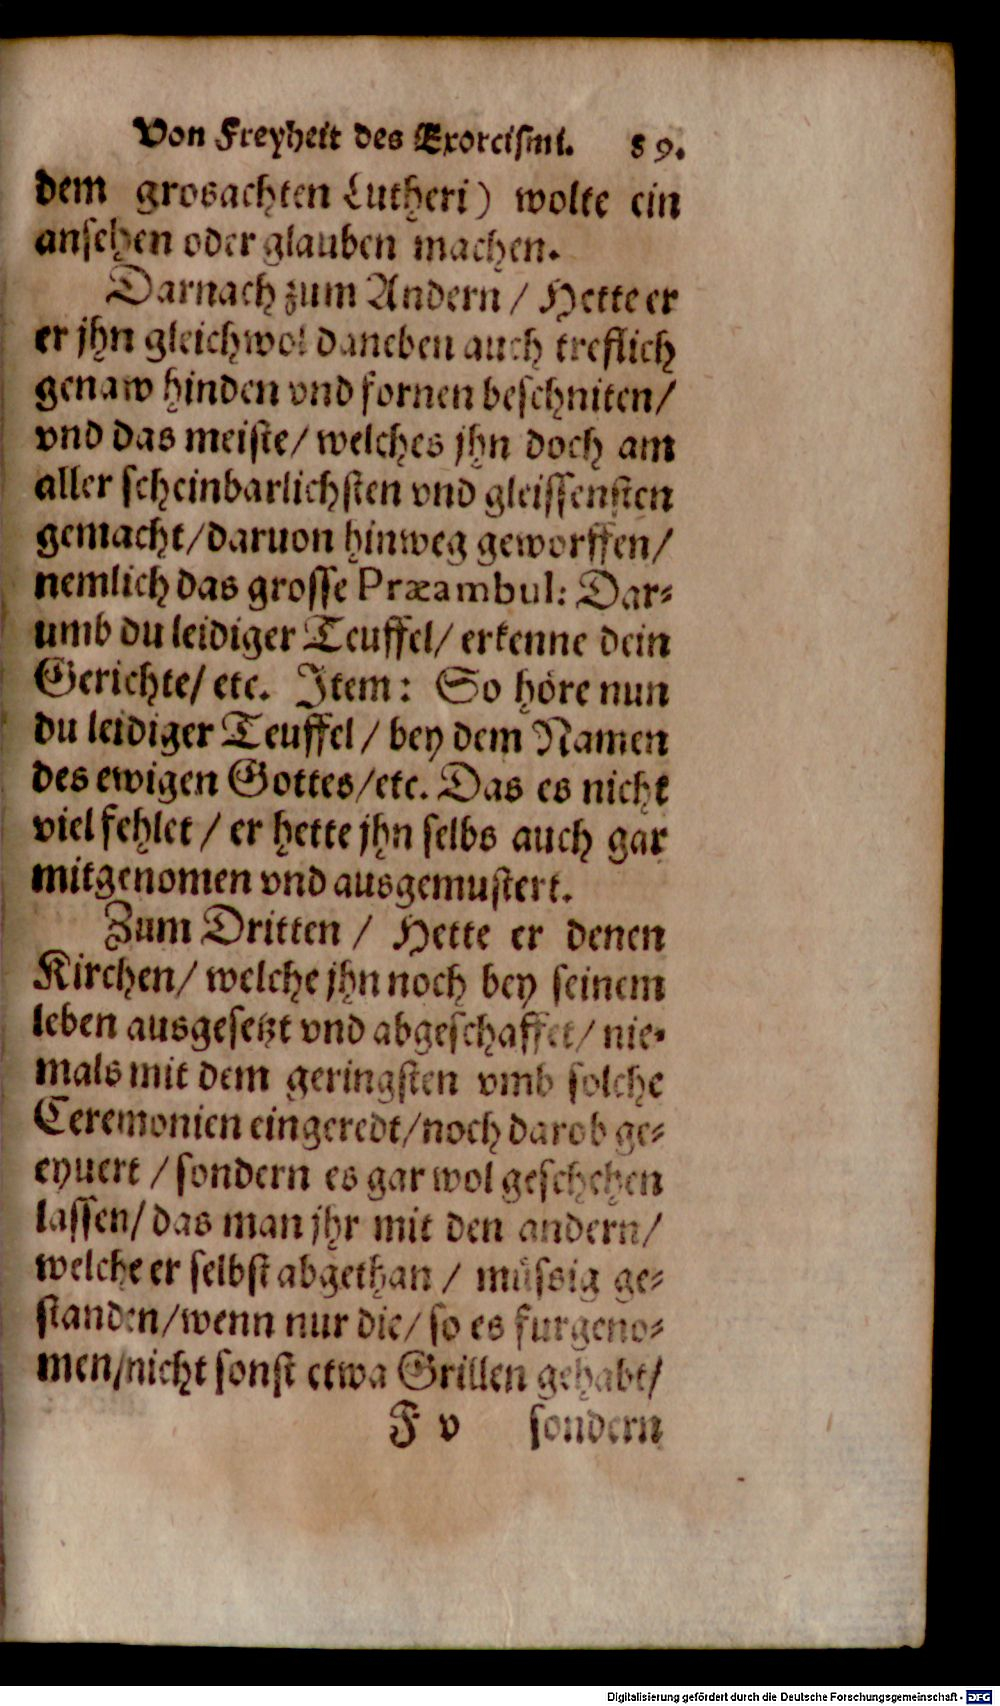 Von Freyheit des Exorcismi. 89.
dem grosachten Lutheri) wolte ein
ansehen oder glauben machen.
Darnach zum Andern / Hette er
er jhn gleichwol daneben auch treflich
genaw hinden vnd fornen beschniten/
vnd das meiste/ welches jhn doch am
aller scheinbarlichsten vnd gleissensten
gemacht/daruon hinweg geworffen/
nemlich das grosse Præambul: Dar-
umb du leidiger Teuffel/ erkenne dein
Gerichte/ etc. Item: So höre nun
du leidiger Teuffel / bey dem Namen
des ewigen Gottes/etc. Das es nicht
viel fehlet / er hette jhn selbs auch gar
mitgenomen vnd ausgemustert.
Zum Dritten / Hette er denen
Kirchen/ welche jhn noch bey seinem
leben ausgesetzt vnd abgeschaffet/ nie-
mals mit dem geringsten vmb solche
Ceremonien eingeredt/noch darob ge-
eyuert / sondern es gar wol geschehen
lassen/ das man jhr mit den andern/
welche er selbst abgethan / müssig ge-
standen/wenn nur die/ so es furgeno-
men/nicht sonst etwa Grillen gehabt/
F v sondern
Digitalisierung gefördert durch die Deutsche Forschungsgemeinschaft - DFG